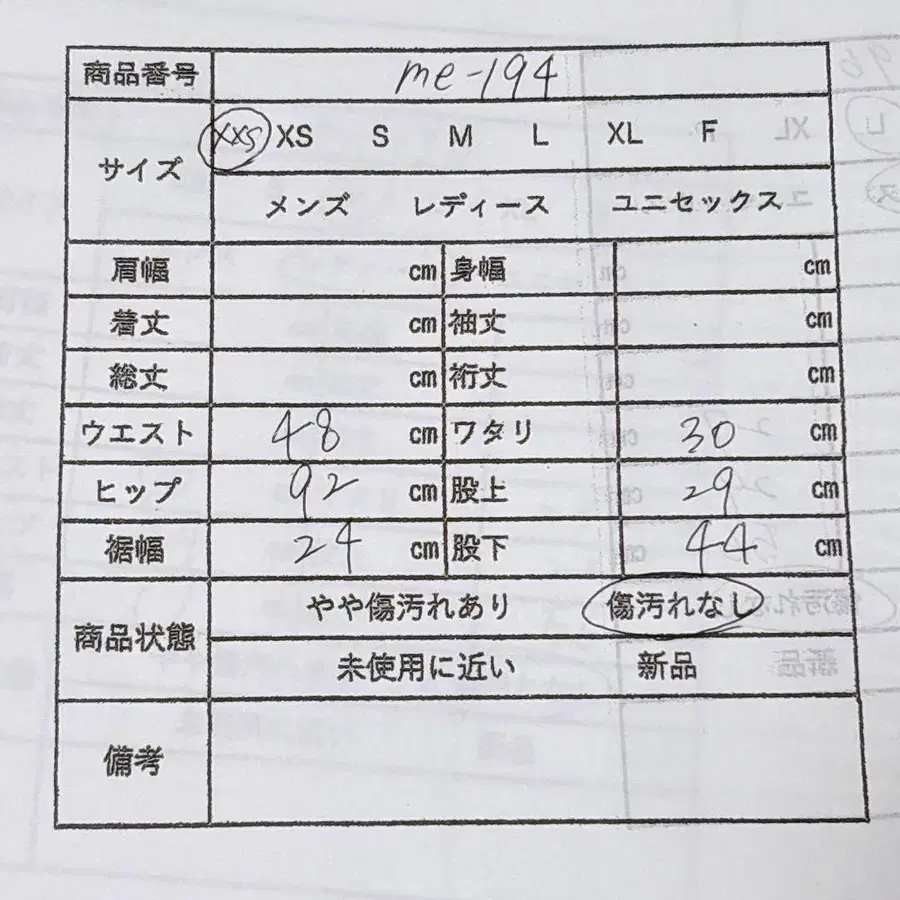 商品番号 me-194
サイズ XXS XS S M L XL F
メンズ レディース ユニセックス
肩幅 cm 身幅 cm
着丈 cm 袖丈 cm
総丈 cm 裄丈 cm
ウエスト 48 cm ワタリ 30 cm
ヒップ 92 cm 股上 29 cm
裾幅 24 cm 股下 44 cm
商品状態 やや傷汚れあり 傷汚れなし
未使用に近い 新品
備考